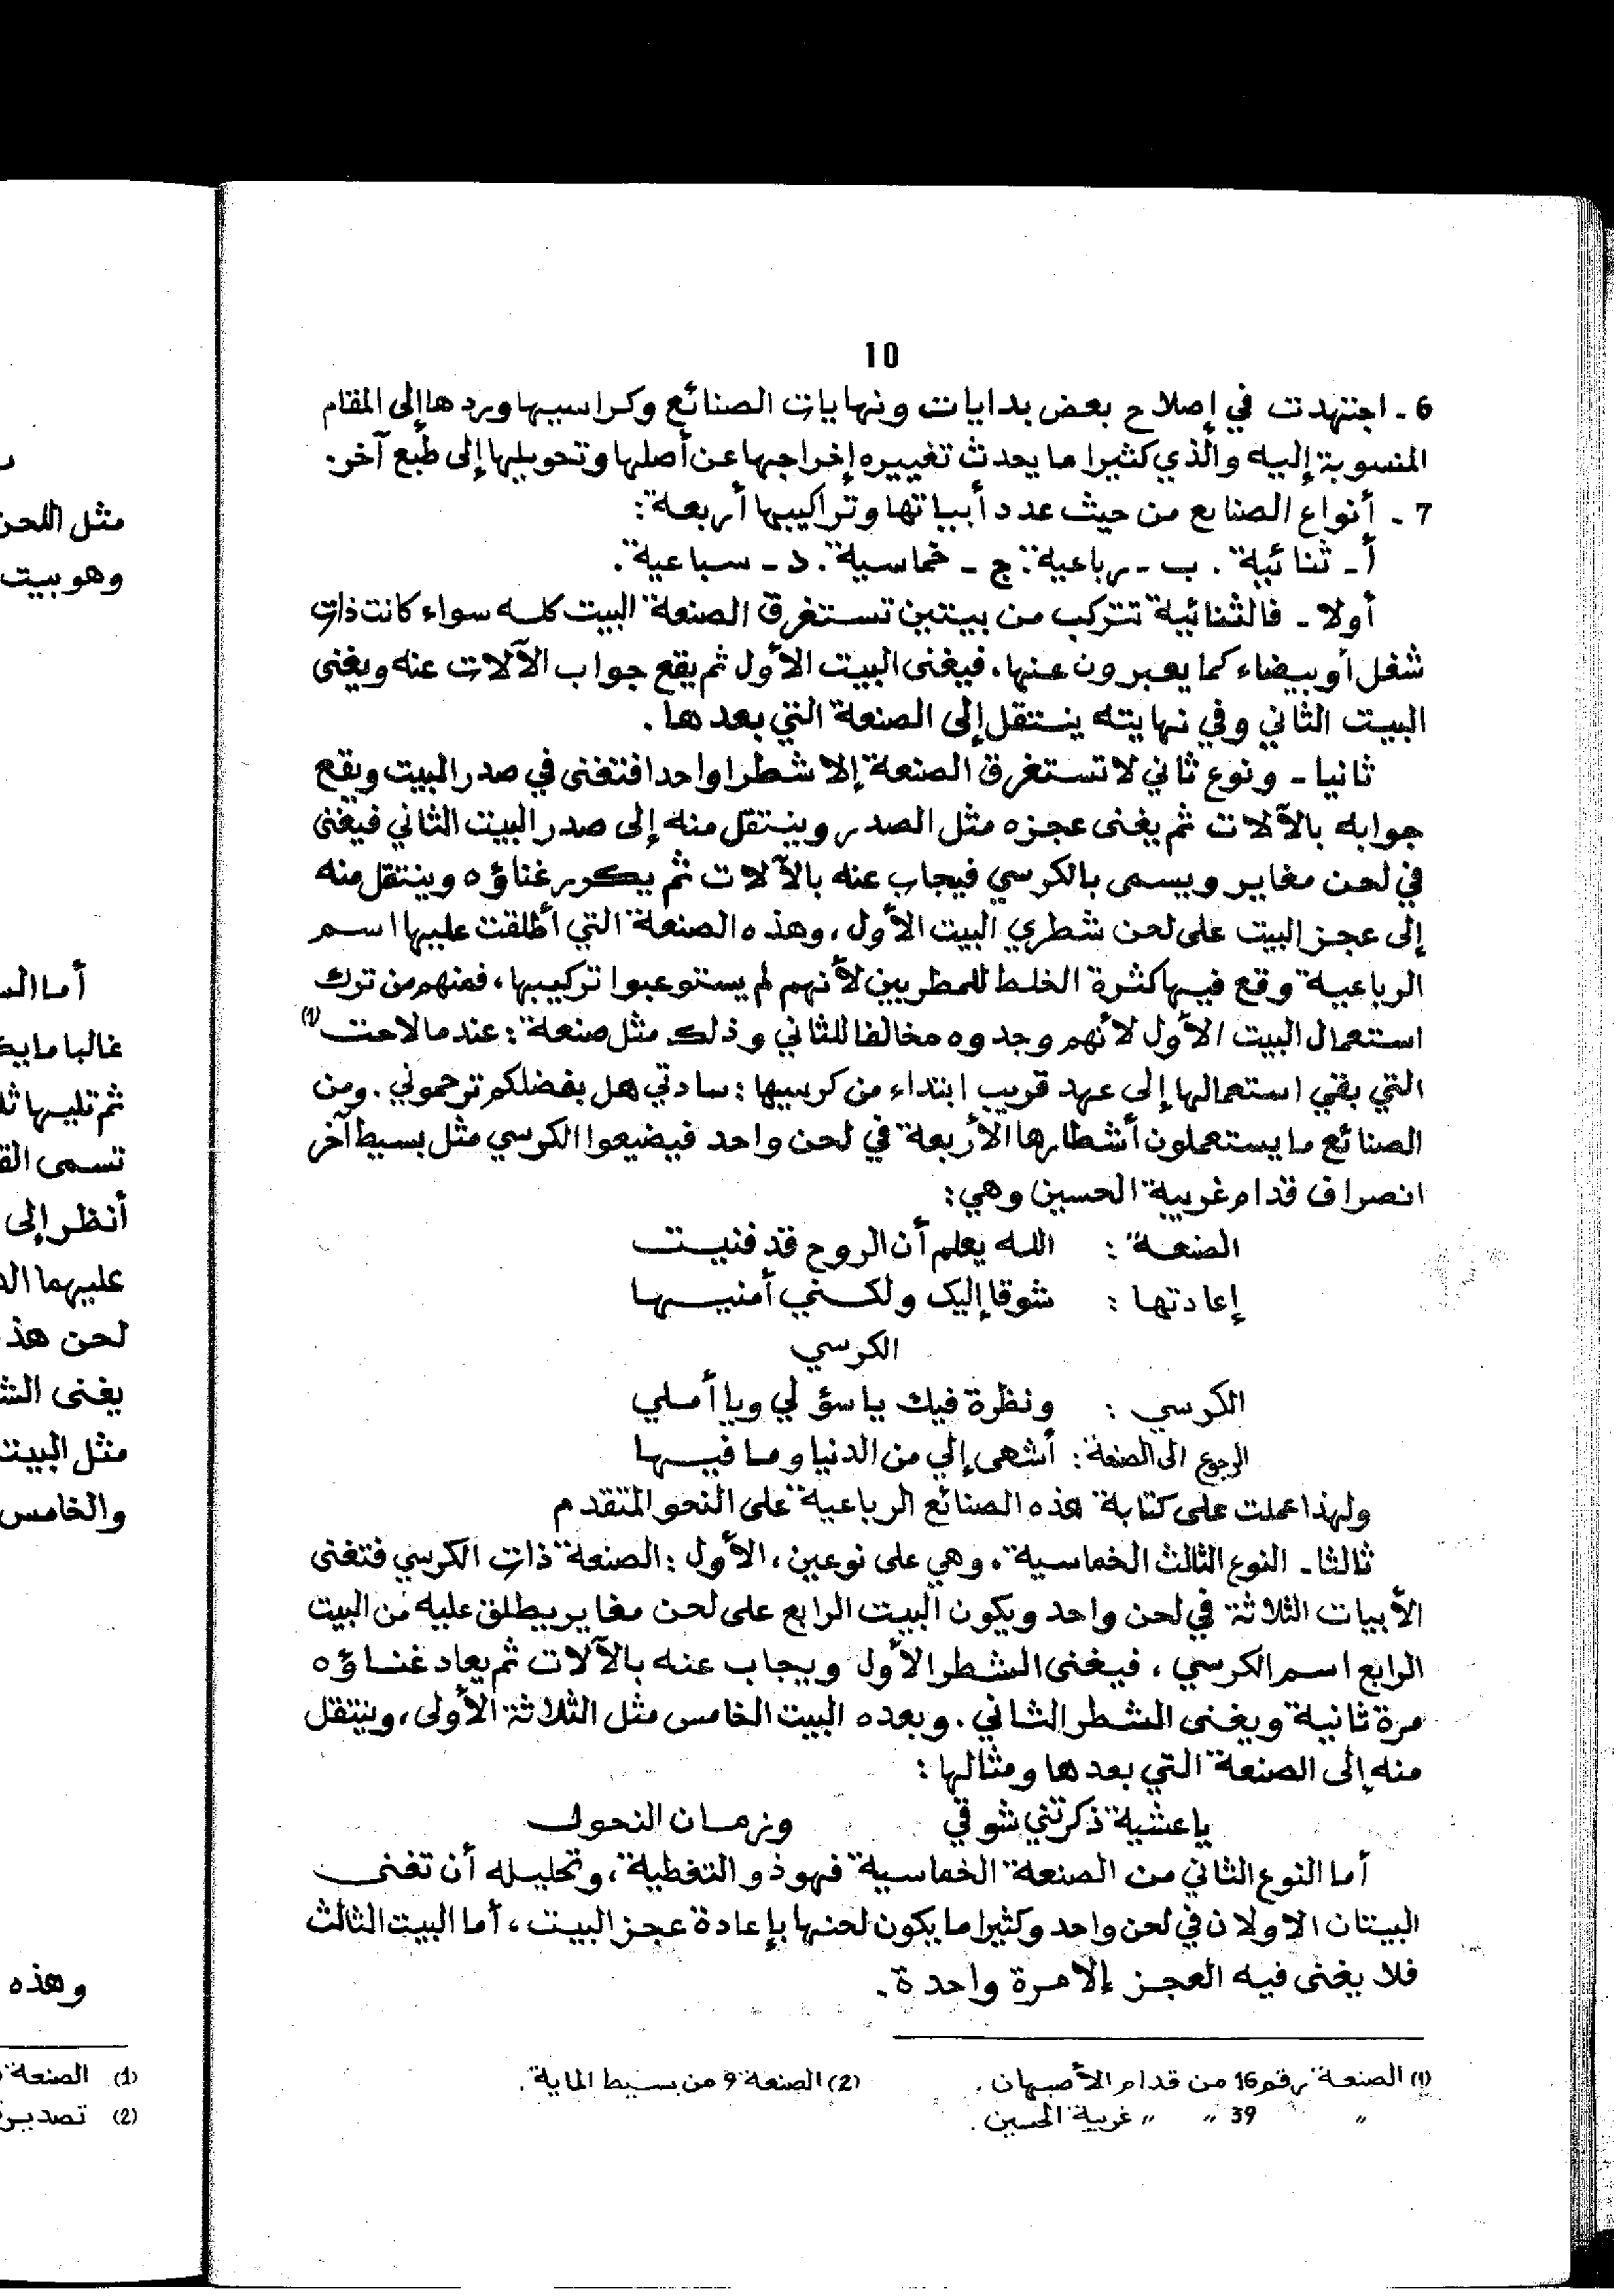 10
6 ـ اجتهدت في إصلاح بعض بدايات ونهايات الصنائع وكراسيها وردها إلى المقام
المنسوبة إليه والذي كثيرا ما يحدث تغييره إخراجها عن أصلها وتحويلها إلى طبع آخر.
7 ـ أنواع الصنايع من حيث عدد أبياتها وتراكيبها أربعة:
أ ـ ثنائية . ب ـ رباعية . ج ـ خماسية . د ـ سباعية .
أولا ـ فالثنائية تتركب من بيتين تستغرق الصنعة البيت كله سواء كانت ذات
شغل أو بيضاء كما يعبرون عنها، فيغنى البيت الأول ثم يقع جواب الآلات عنه ويغنى
البيت الثاني وفي نهايته ينتقل إلى الصنعة التي بعدها .
ثانيا ـ ونوع ثاني لا تستغرق الصنعة إلا شطرا واحدا فتغنى في صدر البيت ويقع
جوابه بالآلات ثم يغنى عجزه مثل الصدر وينتقل منه إلى صدر البيت الثاني فيغنى
في لحن مغاير ويسمى بالكرسي فيجاب عنه بالآلات ثم يكرر غناؤه وينتقل منه
إلى عجز البيت على لحن شطري البيت الأول ، وهذه الصنعة التي أطلقت عليها اسم
الرباعية وقع فيها كثرة الخلط للمطربين لأنهم لم يستوعبوا تركيبها ، فمنهم من ترك
استعمال البيت الأول لأنهم وجدوه مخالفا للثاني وذلك مثل صنعة : عندما لاحت (1)
التي بقي استعمالها إلى عهد قريب ابتداء من كرسيها : سادتي هل بفضلكم ترحموني . ومن
الصنائع ما يستعملون أشطارها الأربعة في لحن واحد فيضيعوا الكرسي مثل بسيط آخر
انصراف قدام غريبة الحسين وهي :
الصنعة : الله يعلم أن الروح قد فنيت
إعادتها : شوقا إليك ولكني أمنيها
الكرسي
الكرسي : ونظرة فيك يا سؤلي ويا أملي
الرجوع الى الصنعة : أشهى إلي من الدنيا وما فيها
ولهذا عملت على كتابة هذه الصنائع الرباعية على النحو المتقدم
ثالثا ـ النوع الثالث الخماسية ، وهي على نوعين ، الأول : الصنعة ذات الكرسي فتغنى
الأبيات الثلاثة في لحن واحد ويكون البيت الرابع على لحن مغاير يطلق عليه من البيت
الرابع اسم الكرسي ، فيغنى الشطر الأول ويجاب عنه بالآلات ثم يعاد غناؤه
مرة ثانية ويغنى الشطر الثاني . وبعده البيت الخامس مثل الثلاثة الأولى ، وينتقل
منه إلى الصنعة التي بعدها ومثالها :
يا عشية ذكرتني شوقي ونزمان النحول
أما النوع الثاني من الصنعة الخماسية فهو ذو التغطية ، وتحليله أن تغنى
البيتان الاولان في لحن واحد وكثيرا ما يكون لحنها بإعادة عجز البيت ، أما البيت الثالث
فلا يغنى فيه العجز إلا مرة واحدة .
(1) الصنعة رقم 16 من قدام الأصبهان . (2) الصنعة 9 من بسيط الماية .
" 39 " " غريبة الحسين .
مثل اللحن
وهو بيت
غالبا ما
ثم تليها
أنظر إلى
لحن هذ
مثل البيت
والخامس
وهذه
(1) الصنعة
(2) تصدير